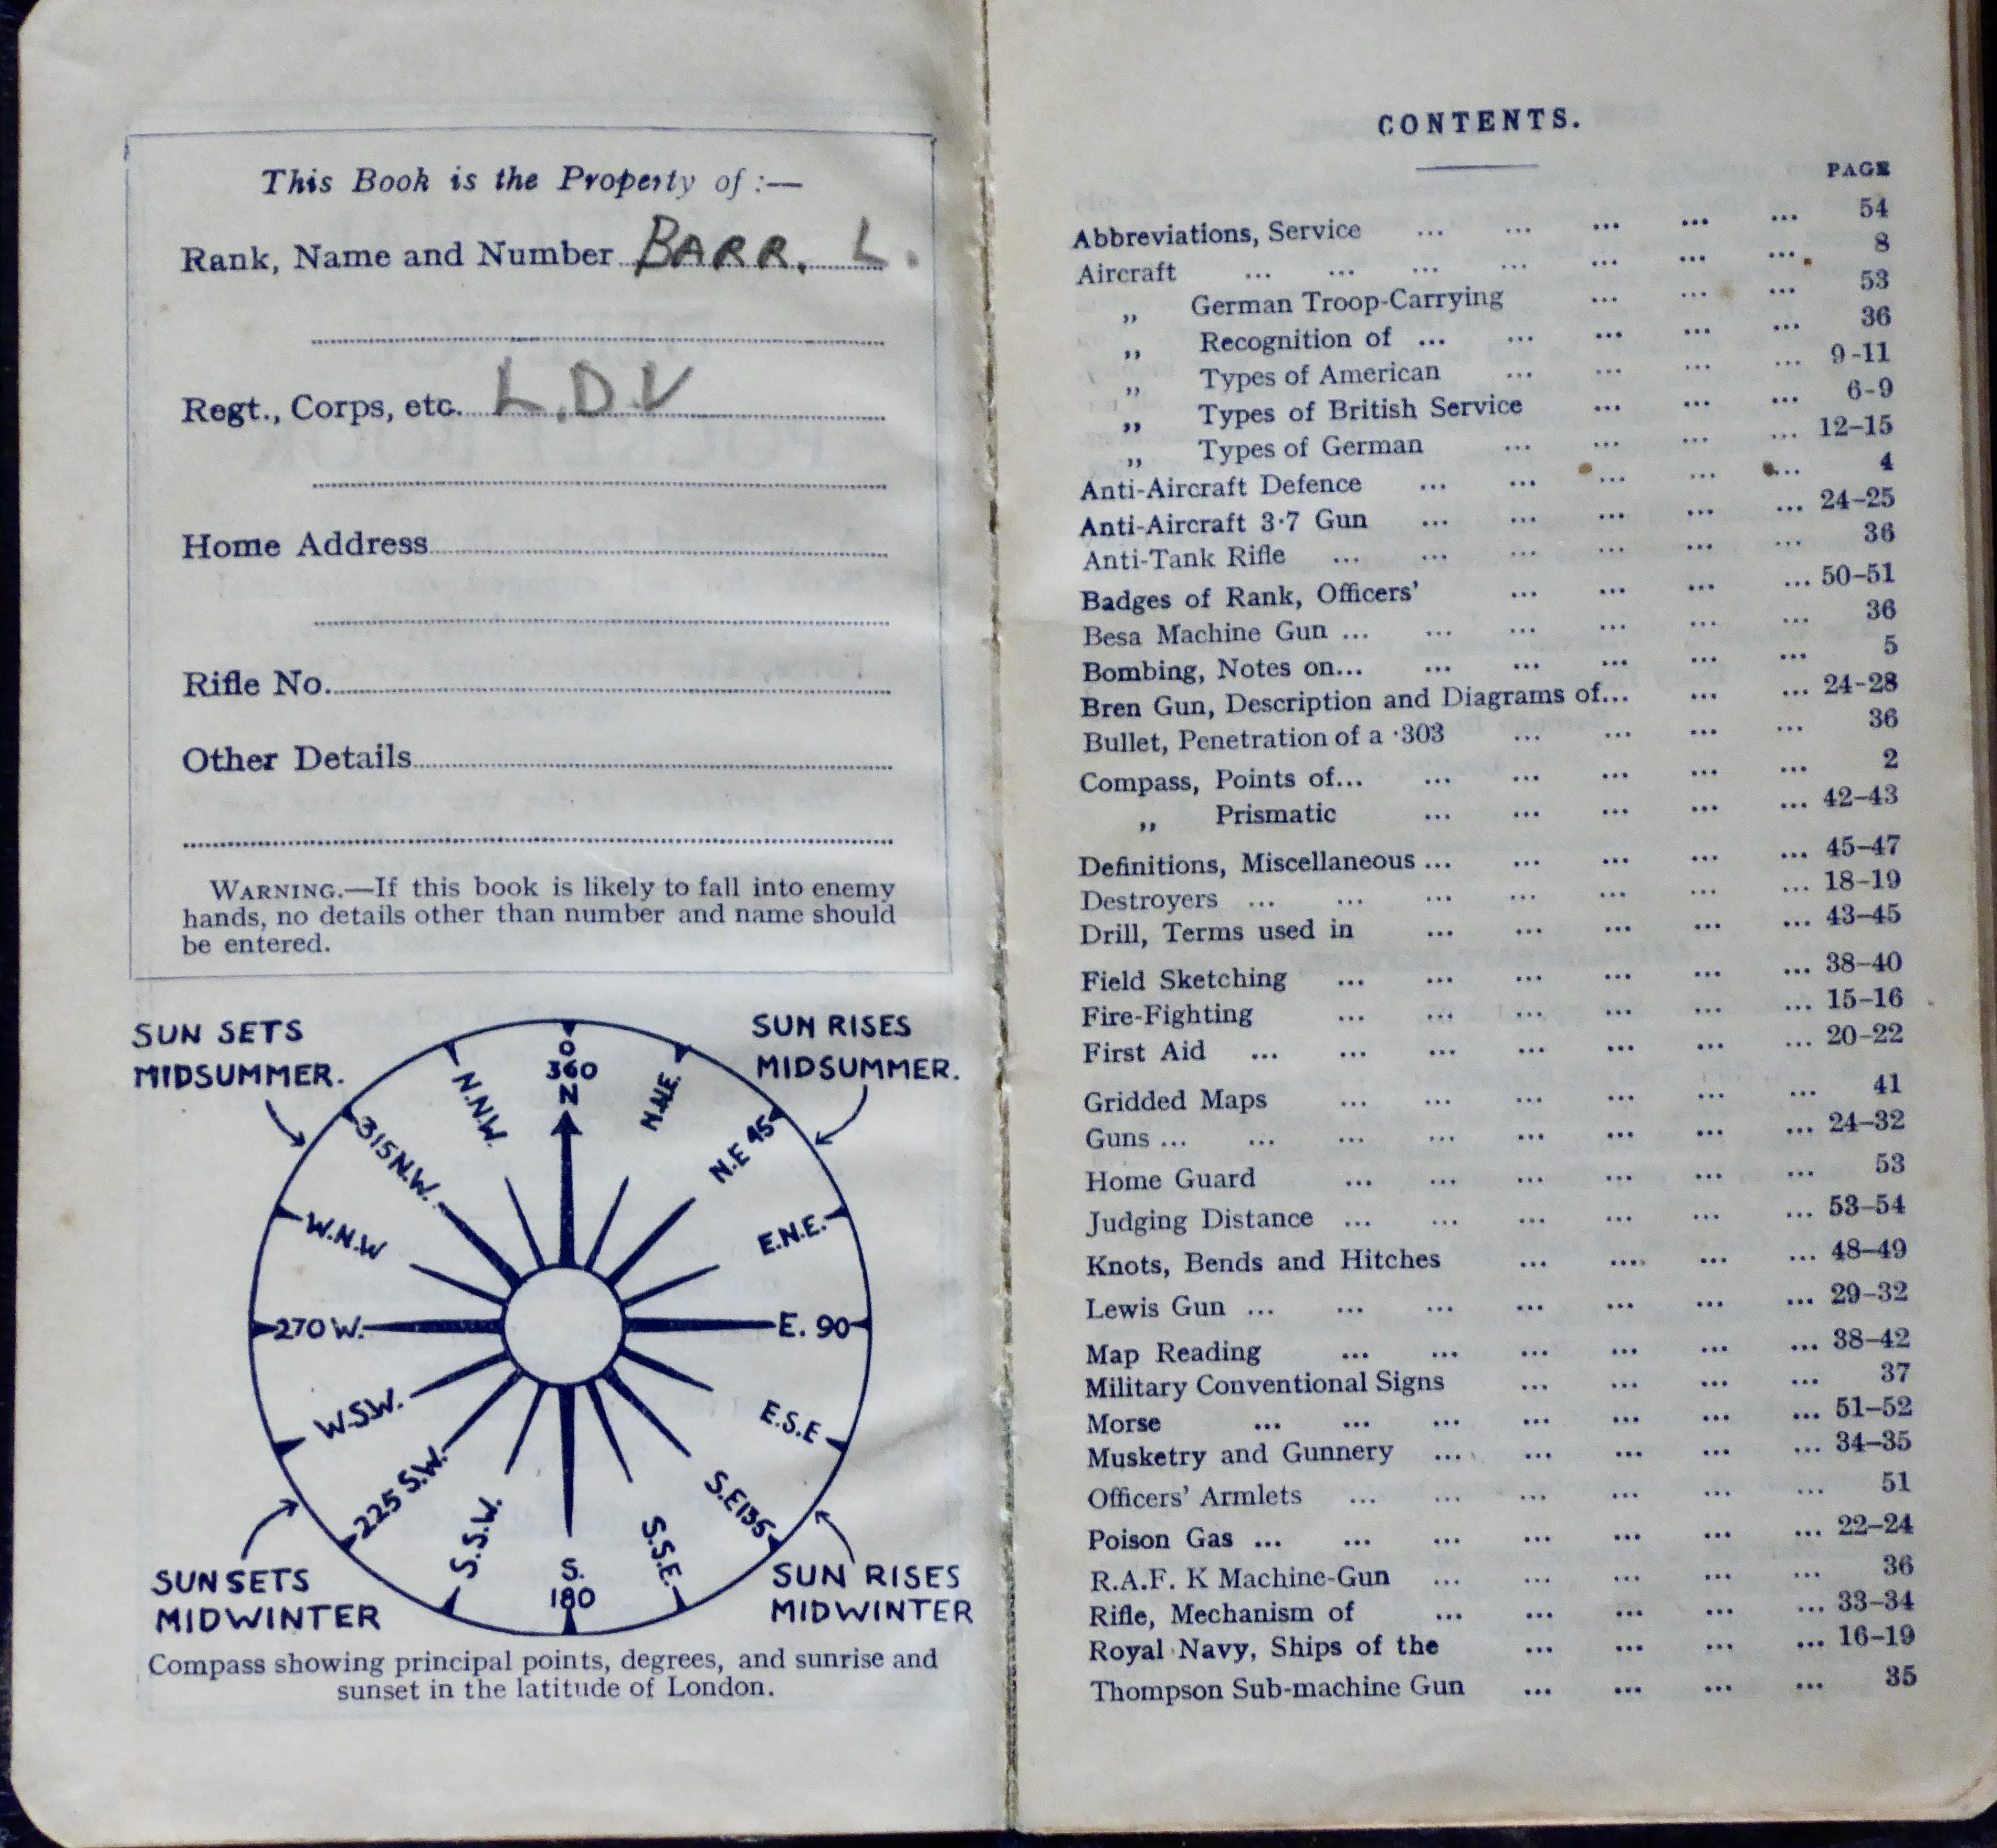 This Book is the Property of :—
Rank, Name and Number BARR. L.
Regt., Corps, etc. L.D.V
Home Address
Rifle No.
Other Details
WARNING.—If this book is likely to fall into enemy
hands, no details other than number and name should
be entered.
SUN SETS
MIDSUMMER.
SUN RISES
MIDSUMMER.
0
360
N
N.N.E.
N.E 45
E.N.E.
E. 90
E.S.E
S.E 135
S.S.E.
S.
180
S.S.W.
225 S.W.
W.S.W.
270 W.
W.N.W
315 N.W.
N.N.W.
SUN SETS
MIDWINTER
SUN RISES
MIDWINTER
Compass showing principal points, degrees, and sunrise and
sunset in the latitude of London.
CONTENTS.
PAGE
Abbreviations, Service ... ... ... ... ... 54
Aircraft ... ... ... ... ... ... ... 8
,, German Troop-Carrying ... ... ... 53
,, Recognition of ... ... ... ... ... 36
,, Types of American ... ... ... ... 9-11
,, Types of British Service ... ... ... 6-9
,, Types of German ... ... ... ... 12-15
Anti-Aircraft Defence ... ... ... ... ... 4
Anti-Aircraft 3·7 Gun ... ... ... ... ... 24-25
Anti-Tank Rifle ... ... ... ... ... ... 36
Badges of Rank, Officers' ... ... ... ... 50-51
Besa Machine Gun ... ... ... ... ... ... 36
Bombing, Notes on... ... ... ... ... ... 5
Bren Gun, Description and Diagrams of... ... ... 24-28
Bullet, Penetration of a ·303 ... ... ... ... 36
Compass, Points of... ... ... ... ... ... 2
,, Prismatic ... ... ... ... ... 42-43
Definitions, Miscellaneous ... ... ... ... ... 45-47
Destroyers ... ... ... ... ... ... ... 18-19
Drill, Terms used in ... ... ... ... ... 43-45
Field Sketching ... ... ... ... ... ... 38-40
Fire-Fighting ... ... ... ... ... ... 15-16
First Aid ... ... ... ... ... ... ... 20-22
Gridded Maps ... ... ... ... ... ... 41
Guns ... ... ... ... ... ... ... ... 24-32
Home Guard ... ... ... ... ... ... 53
Judging Distance ... ... ... ... ... ... 53-54
Knots, Bends and Hitches ... ... ... ... 48-49
Lewis Gun ... ... ... ... ... ... ... 29-32
Map Reading ... ... ... ... ... ... 38-42
Military Conventional Signs ... ... ... ... 37
Morse ... ... ... ... ... ... ... 51-52
Musketry and Gunnery ... ... ... ... ... 34-35
Officers' Armlets ... ... ... ... ... ... 51
Poison Gas ... ... ... ... ... ... ... 22-24
R.A.F. K Machine-Gun ... ... ... ... ... 36
Rifle, Mechanism of ... ... ... ... ... 33-34
Royal Navy, Ships of the ... ... ... ... 16-19
Thompson Sub-machine Gun ... ... ... ... 35